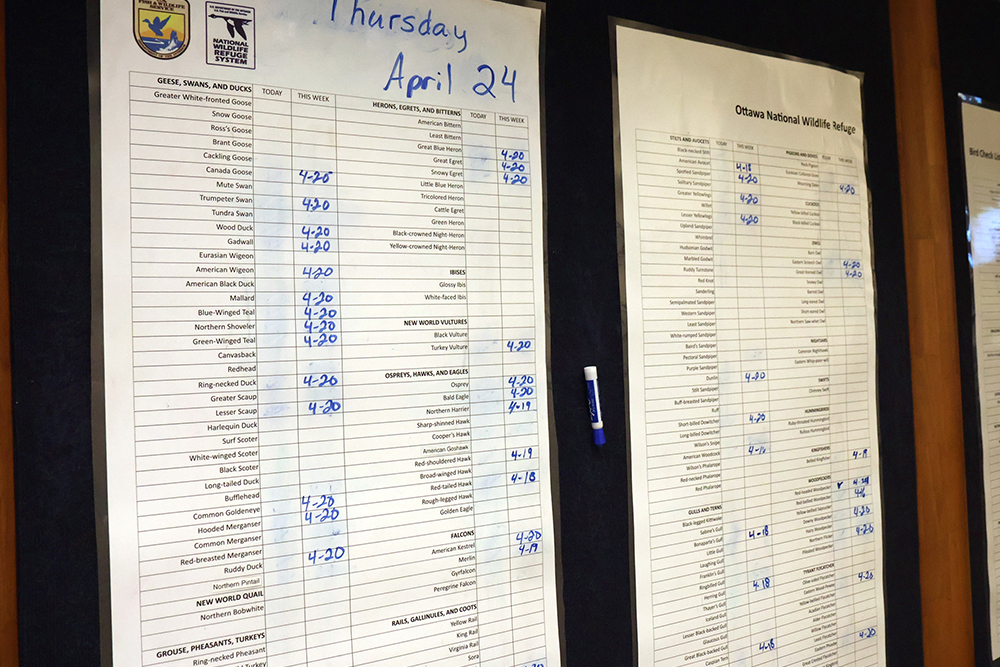 Thursday
April 24
FISH & WILDLIFE
SERVICE
NATIONAL
WILDLIFE
REFUGE
SYSTEM
GEESE, SWANS, AND DUCKS TODAY THIS WEEK
Greater White-fronted Goose
Snow Goose
Ross's Goose
Brant Goose
Cackling Goose
Canada Goose 4-20
Mute Swan
Trumpeter Swan 4-20
Tundra Swan
Wood Duck 4-20
Gadwall 4-20
Eurasian Wigeon
American Wigeon 4-20
American Black Duck
Mallard 4-20
Blue-Winged Teal 4-20
Northern Shoveler 4-20
Green-Winged Teal 4-20
Canvasback
Redhead
Ring-necked Duck 4-20
Greater Scaup
Lesser Scaup 4-20
Harlequin Duck
Surf Scoter
White-winged Scoter
Black Scoter
Long-tailed Duck
Bufflehead 4-20
Common Goldeneye 4-20
Hooded Merganser
Common Merganser
Red-breasted Merganser 4-20
Ruddy Duck
Northern Pintail
NEW WORLD QUAIL
Northern Bobwhite
GROUSE, PHEASANTS, TURKEYS
Ring-necked Pheasant
Turkey
HERONS, EGRETS, AND BITTERNS TODAY THIS WEEK
American Bittern
Least Bittern
Great Blue Heron 4-20
Great Egret 4-20
Snowy Egret 4-20
Little Blue Heron
Tricolored Heron
Cattle Egret
Green Heron
Black-crowned Night-Heron
Yellow-crowned Night-Heron
IBISES
Glossy Ibis
White-faced Ibis
NEW WORLD VULTURES
Black Vulture
Turkey Vulture 4-20
OSPREYS, HAWKS, AND EAGLES
Osprey 4-20
Bald Eagle 4-20
Northern Harrier 4-19
Sharp-shinned Hawk
Cooper's Hawk
American Goshawk
Red-shouldered Hawk 4-19
Broad-winged Hawk
Red-tailed Hawk 4-18
Rough-legged Hawk
Golden Eagle
FALCONS
American Kestrel 4-20
Merlin 4-19
Gyrfalcon
Peregrine Falcon
RAILS, GALLINULES, AND COOTS
Yellow Rail
King Rail
Virginia Rail
Sora
Ottawa National Wildlife Refuge
STILTS AND AVOCETS TODAY THIS WEEK
Black-necked Stilt
American Avocet 4-18
Spotted Sandpiper 4-20
Solitary Sandpiper
Greater Yellowlegs 4-20
Willet
Lesser Yellowlegs 4-20
Upland Sandpiper
Whimbrel
Hudsonian Godwit
Marbled Godwit
Ruddy Turnstone
Red Knot
Sanderling
Semipalmated Sandpiper
Western Sandpiper
Least Sandpiper
White-rumped Sandpiper
Baird's Sandpiper
Pectoral Sandpiper
Purple Sandpiper
Dunlin 4-20
Stilt Sandpiper
Buff-breasted Sandpiper
Ruff
Short-billed Dowitcher 4-20
Long-billed Dowitcher
Wilson's Snipe
American Woodcock
Wilson's Phalarope
Red-necked Phalarope
Red Phalarope
GULLS AND TERNS
Black-legged Kittiwake
Sabine's Gull
Bonaparte's Gull 4-18
Little Gull
Laughing Gull
Franklin's Gull
Ringbilled Gull 4-18
Herring Gull
Thayer's Gull
Iceland Gull
Lesser Black-backed Gull
Glaucous Gull
Great Black-backed Gull 4-18
Caspian Tern
PIGEONS AND DOVES TODAY THIS WEEK
Rock Pigeon
Eurasian Collared-Dove
Mourning Dove 4-20
CUCKOOS
Yellow-billed Cuckoo
Black-billed Cuckoo
OWLS
Barn Owl
Eastern Screech Owl 4-20
Great Horned Owl 4-20
Snowy Owl
Barred Owl
Long-eared Owl
Short-eared Owl
Northern Saw-whet Owl
NIGHTJARS
Common Nighthawk
Eastern Whip-poor-will
SWIFTS
Chimney Swift
HUMMINGBIRDS
Ruby-throated Hummingbird
Rufous Hummingbird
KINGFISHERS
Belted Kingfisher 4-19
WOODPECKERS
Red-headed Woodpecker
Red-bellied Woodpecker
Yellow-bellied Sapsucker 4-20
Downy Woodpecker
Hairy Woodpecker 4-20
Northern Flicker
Pileated Woodpecker
TYRANT FLYCATCHER
Olive-sided Flycatcher 4-20
Eastern Wood-Pewee
Yellow-bellied Flycatcher
Acadian Flycatcher
Alder Flycatcher
Willow Flycatcher
Least Flycatcher 4-20
Eastern Phoebe
Bird Check